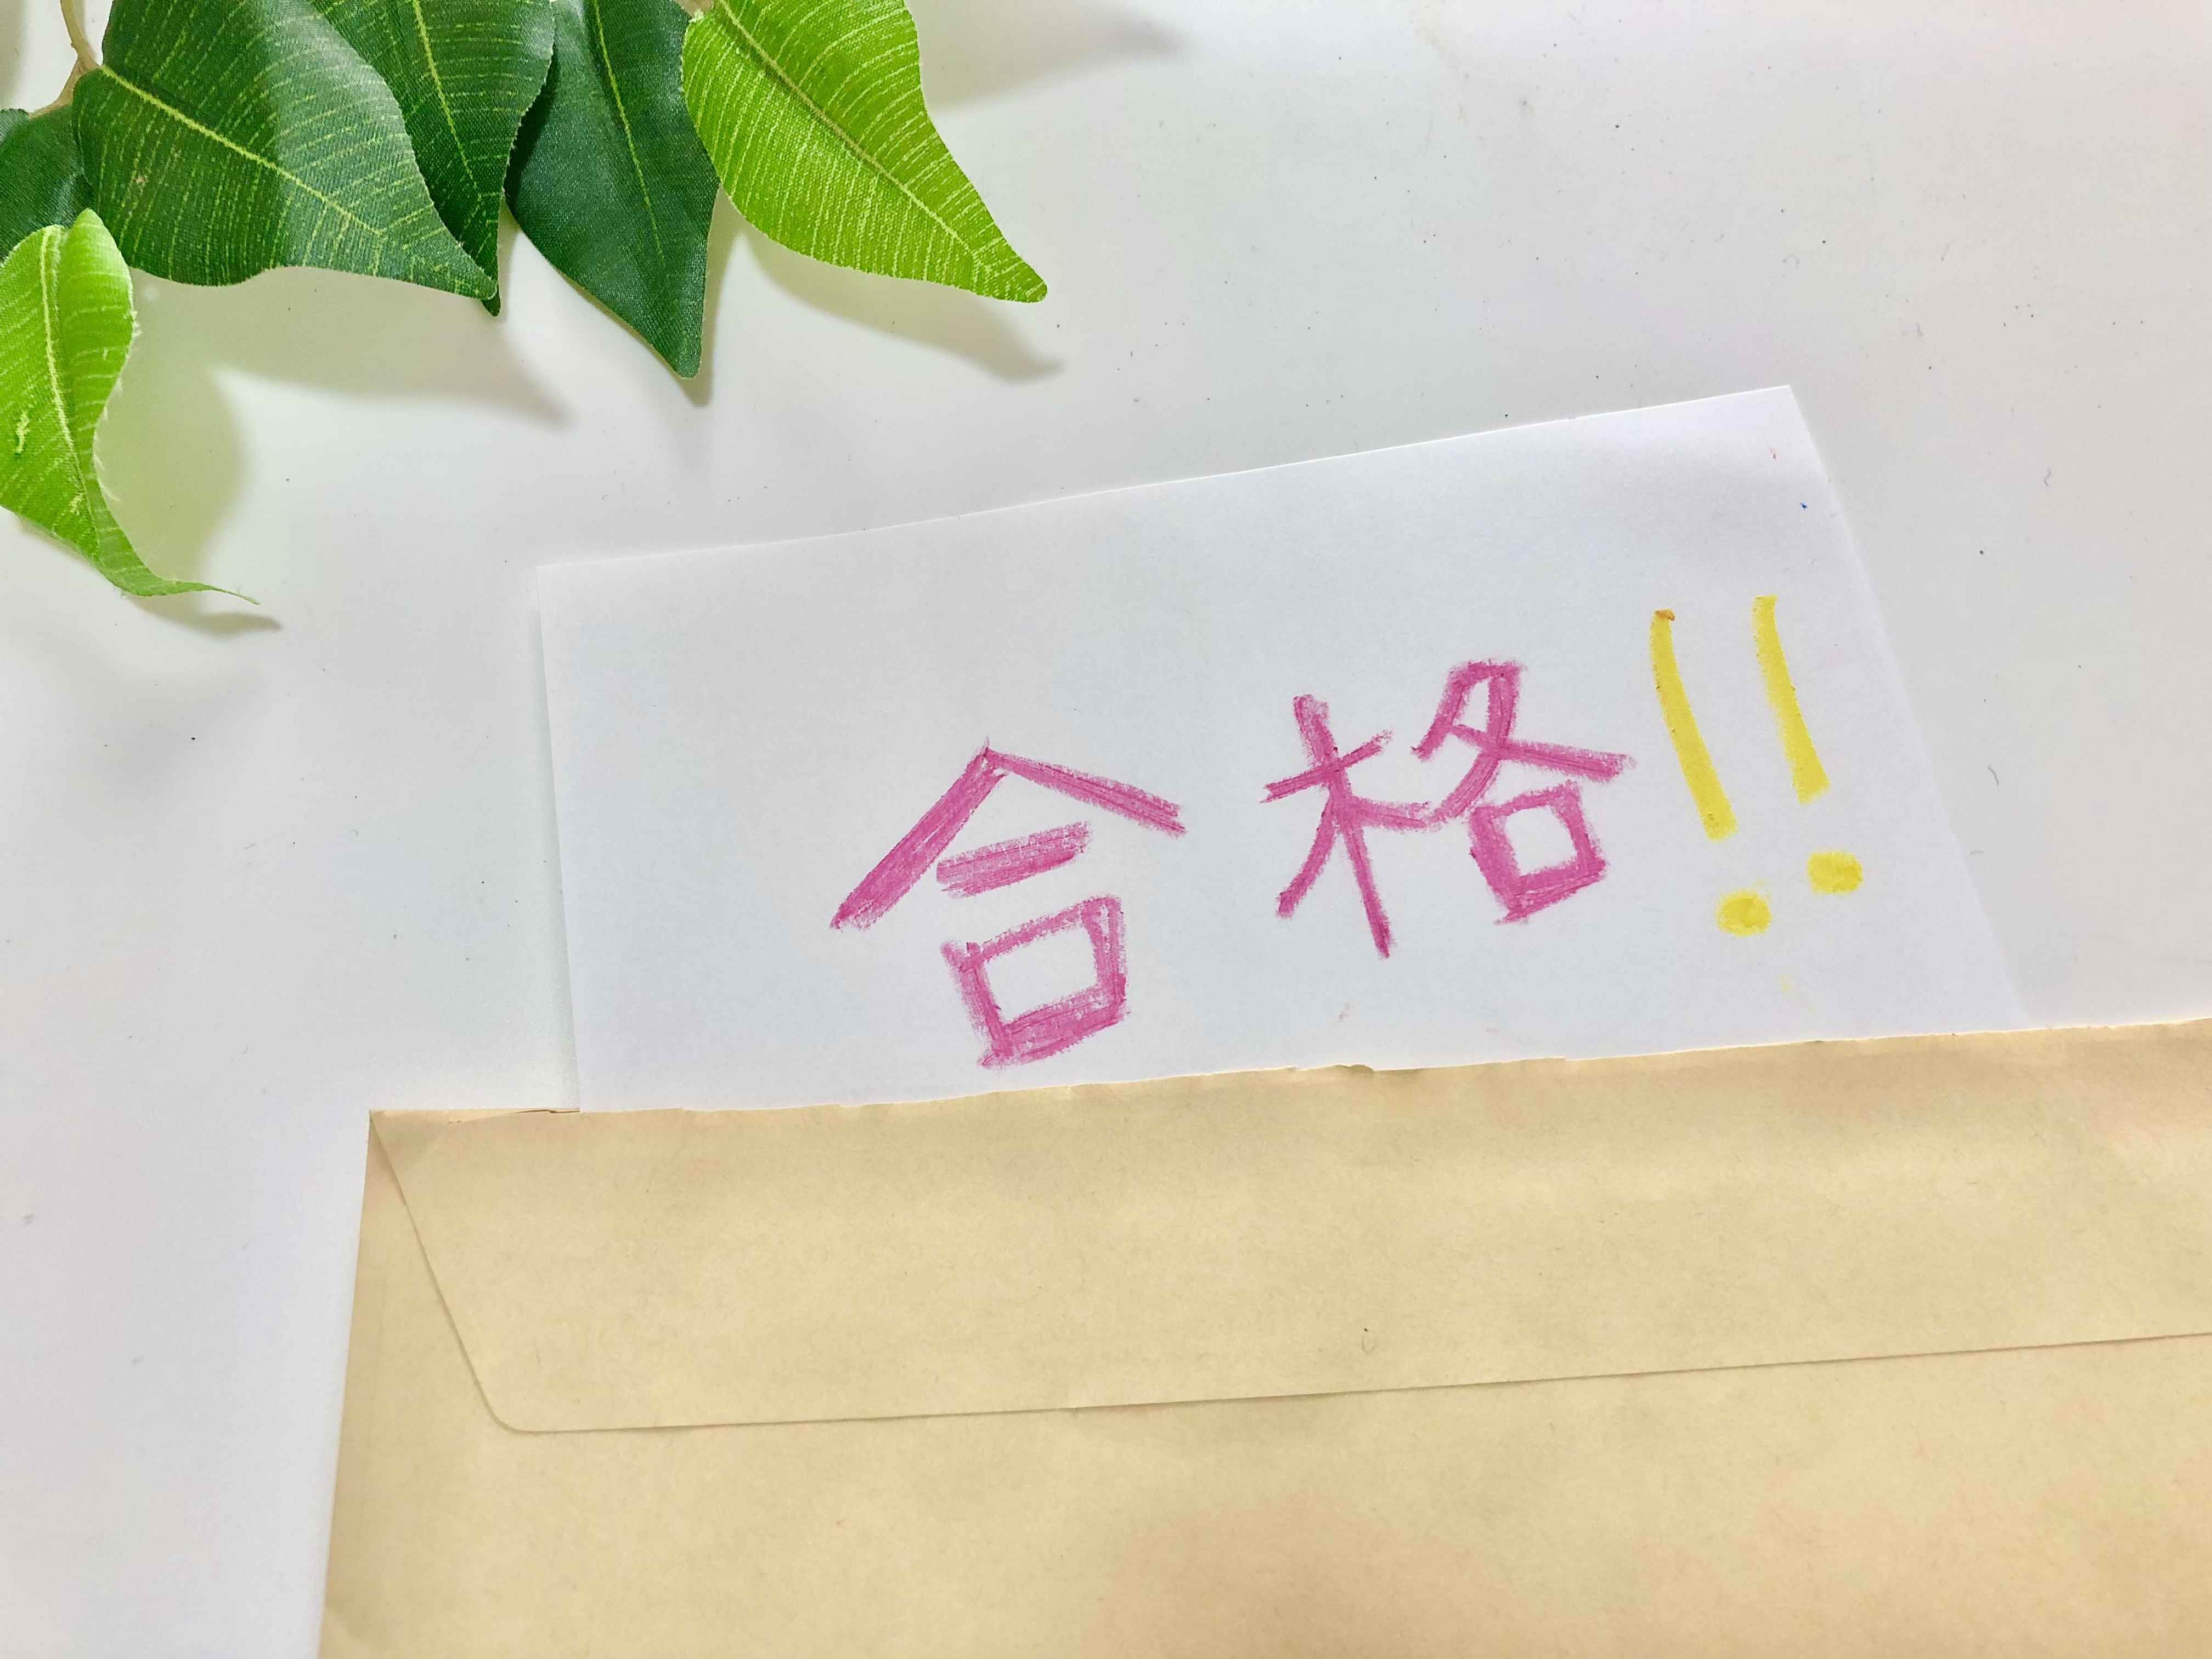 合格!!